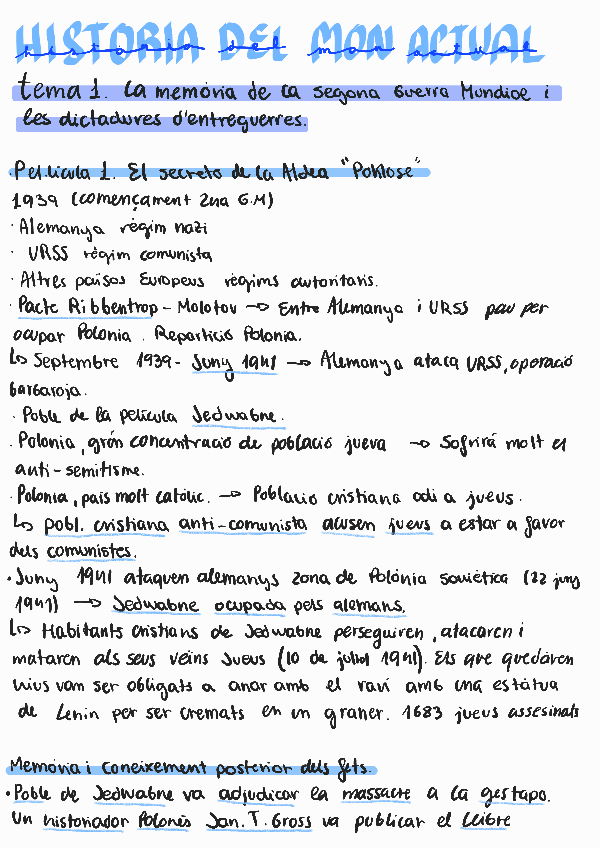 HISTORIA DEL MON ACTUAL
historia del mon actual
tema 1. La memòria de la Segona Guerra Mundial i
les dictadures d'entreguerres.
·Pel·lícula 1. El secreto de la Aldea "Poklosie"
1939 (començament 2na G.M)
· Alemanya règim nazi
· URSS règim comunista
· Altres països Europeus règims autoritaris.
· Pacte Ribbentrop - Molotov → Entre Alemanya i URSS pau per
ocupar Polonia. Repartició Polonia.
↳ Septembre 1939 - Juny 1941 → Alemanya ataca URSS, operació
barbaroja.
· Poble de la película Jedwabne.
· Polonia, gran concentració de població jueva → Sofrirà molt el
anti-semitisme.
· Polonia, país molt catòlic. → Població cristiana odi a jueus.
↳ pobl. cristiana anti-comunista acusen jueus a estar a favor
dels comunistes.
· Juny 1941 ataquen alemanys zona de Polónia soviètica (22 juny
1941) → Jedwabne ocupada pels alemans.
↳ Habitants cristians de Jedwabne perseguiren, atacaren i
mataren als seus veïns Jueus (10 de juliol 1941). Els que quedaren
vius vam ser obligats a anar amb el raví amb una estàtua
de Lenin per ser cremats en un graner. 1683 jueus assesinats
Memòria i coneixement posterior dels fets.
· Poble de Jedwabne va adjudicar la massacre a la gestapo.
Un historiador Polonès Jan. T. Gross va publicar el llibre